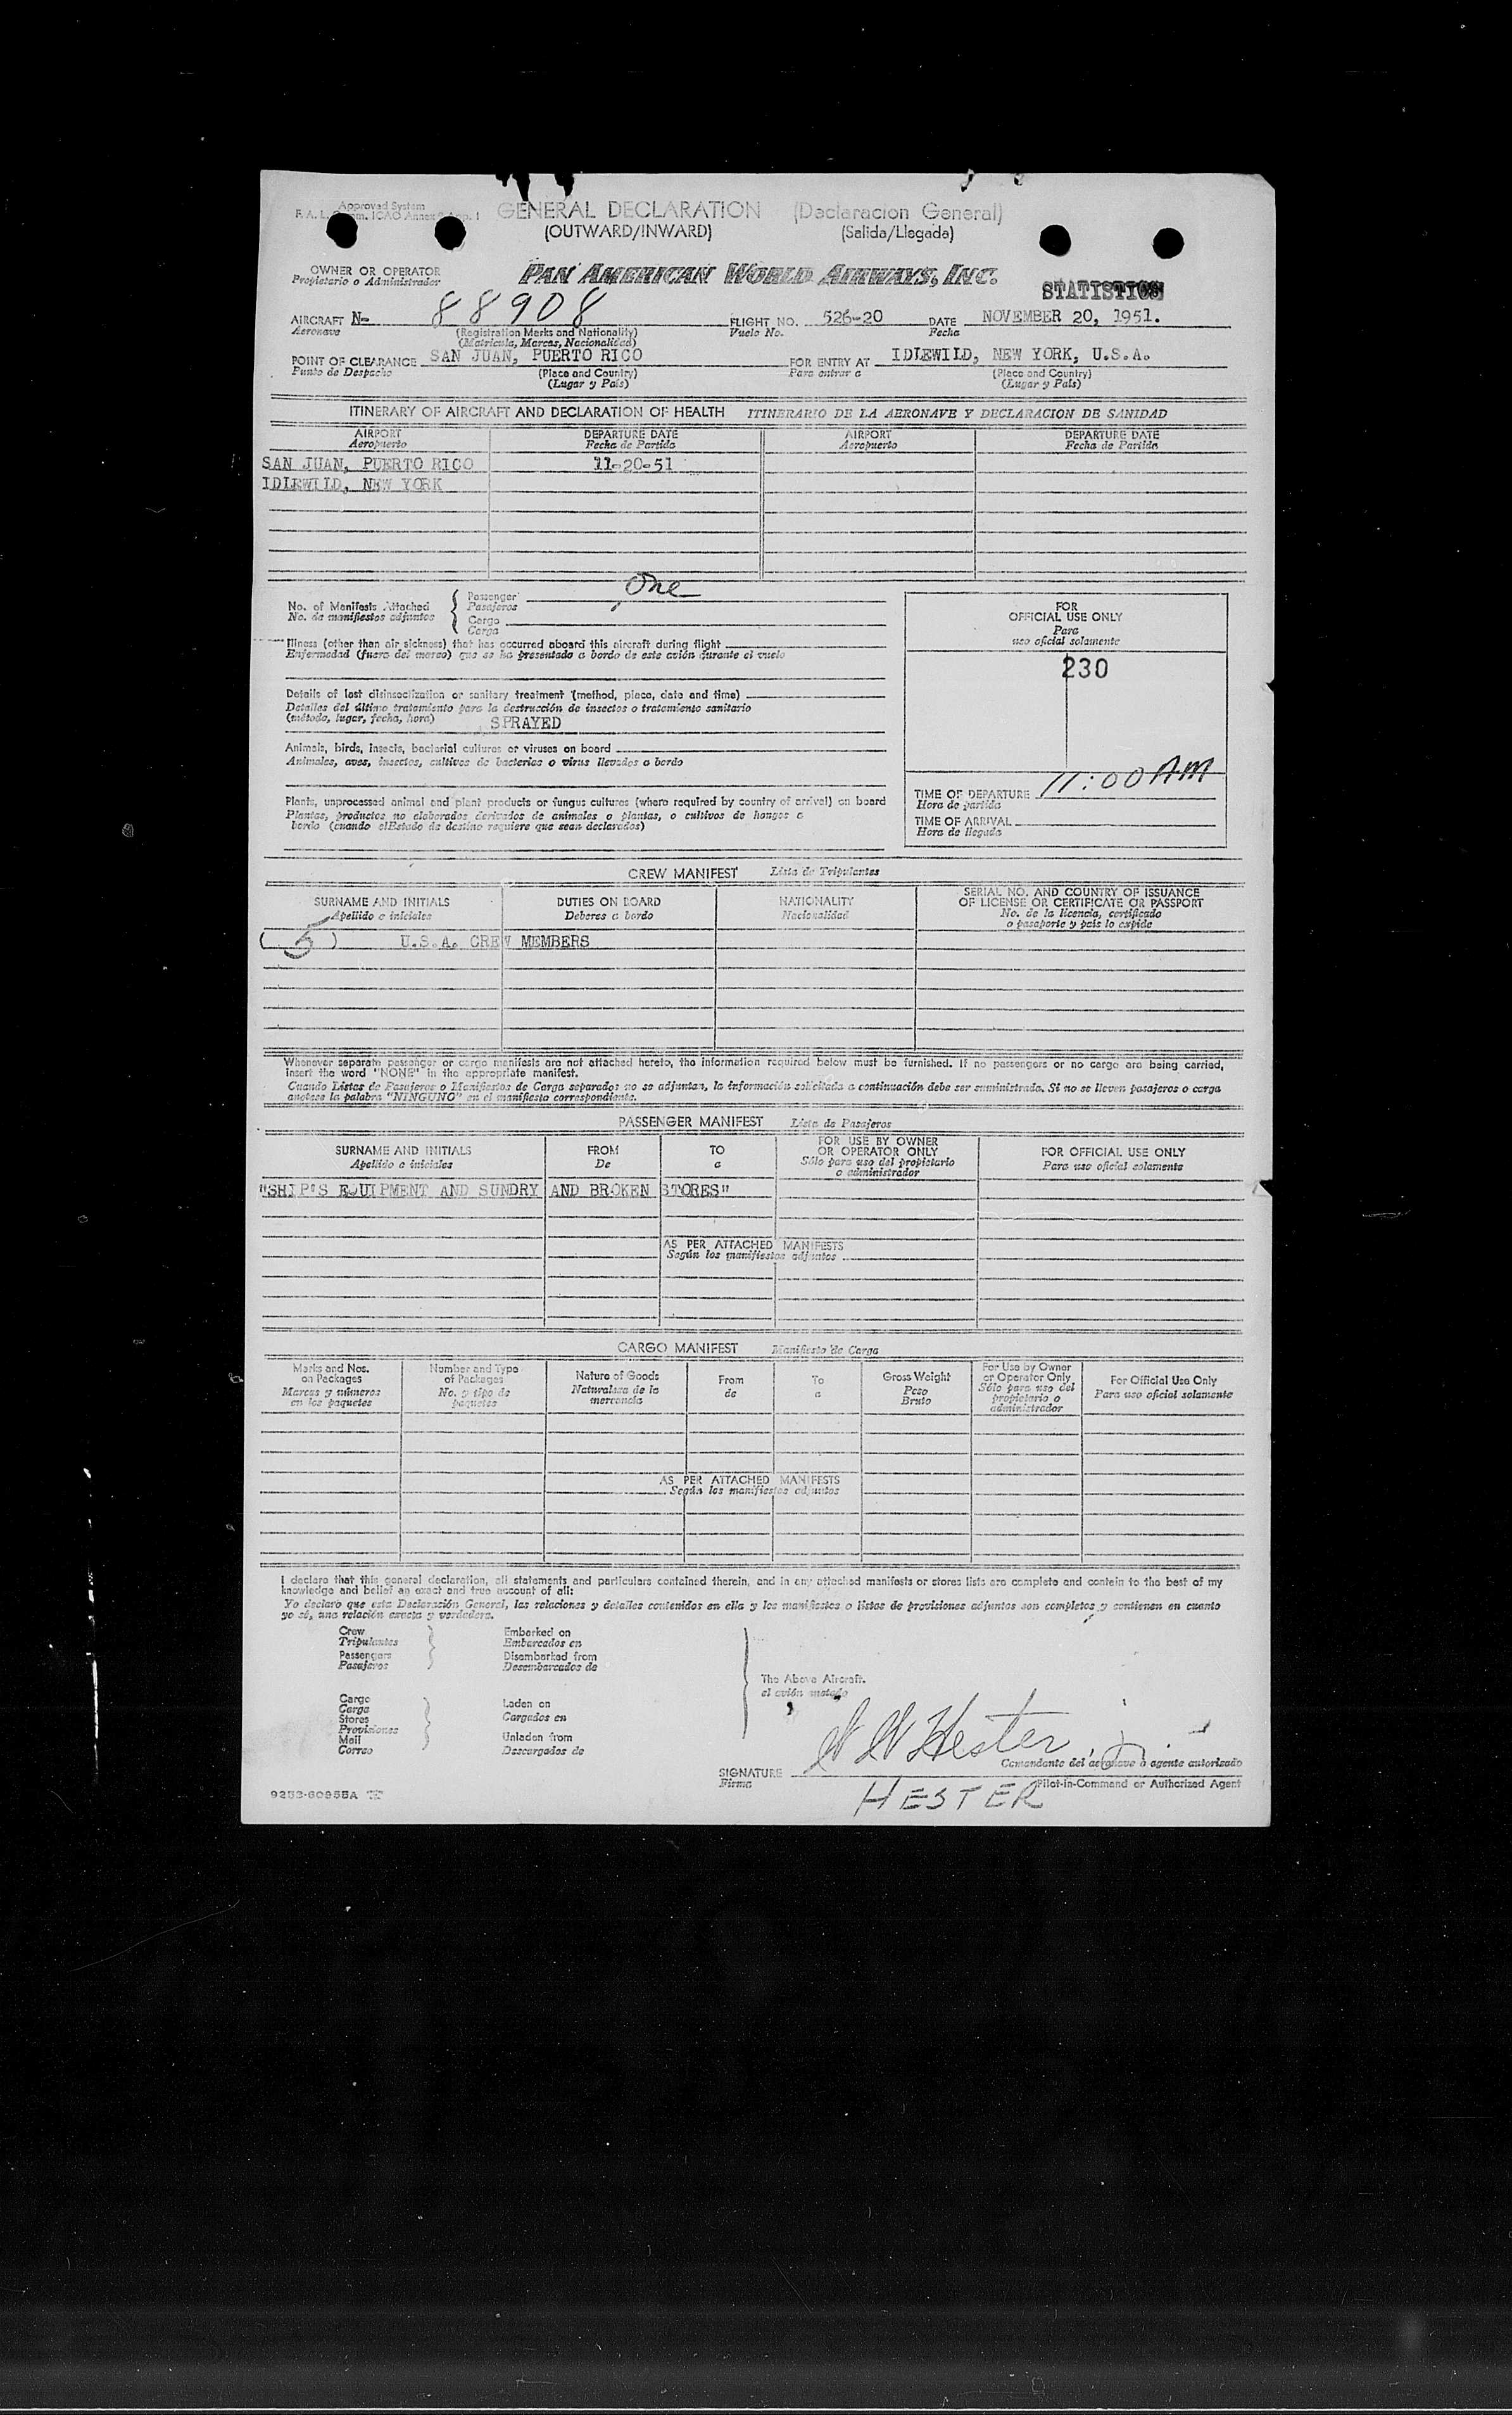 Approved System
GENERAL DECLARATION (Declaracion General)
(OUTWARD/INWARD) (Salida/Llegada)
OWNER OR OPERATOR
Propietario o Administrador
PAN AMERICAN WORLD AIRWAYS, INC.
STATISTICS
AIRCRAFT N- 88908 FLIGHT NO. 526-20 DATE NOVEMBER 20, 1951.
Aeronave (Registration Marks and Nationality) Vuelo No. Fecha
(Matricula, Marcas, Nacionalidad)
POINT OF CLEARANCE SAN JUAN, PUERTO RICO FOR ENTRY AT IDLEWILD, NEW YORK, U.S.A.
Punto de Despacho (Place and Country) Para entrar a (Place and Country)
(Lugar y País) (Lugar y País)
ITINERARY OF AIRCRAFT AND DECLARATION OF HEALTH ITINERARIO DE LA AERONAVE Y DECLARACION DE SANIDAD
AIRPORT DEPARTURE DATE AIRPORT DEPARTURE DATE
Aeropuerto Fecha de Partida Aeropuerto Fecha de Partida
SAN JUAN, PUERTO RICO 11-20-51
IDLEWILD, NEW YORK
No. of Manifests Attached
No. de manifiestos adjuntos
Passenger One
Pasajeros
Cargo
Carga
Illness (other than air sickness) that has occurred aboard this aircraft during flight
Enfermedad (fuera del mareo) que se ha presentado a bordo de este avión durante el vuelo
Details of last disinsectization or sanitary treatment (method, place, date and time)
Detalles del último tratamiento para la destrucción de insectos o tratamiento sanitario
(método, lugar, fecha, hora) SPRAYED
Animals, birds, insects, bacterial cultures or viruses on board
Animales, aves, insectos, cultivos de bacterias o virus llevados a bordo
Plants, unprocessed animal and plant products or fungus cultures (where required by country of arrival) on board
Plantas, productos no elaborados derivados de animales o plantas, o cultivos de hongos a
bordo (cuando el Estado de destino requiere que sean declarados)
FOR
OFFICIAL USE ONLY
Para
uso oficial solamente
230
TIME OF DEPARTURE 11:00 AM
Hora de partida
TIME OF ARRIVAL
Hora de llegada
CREW MANIFEST Lista de Tripulantes
SURNAME AND INITIALS DUTIES ON BOARD NATIONALITY SERIAL NO. AND COUNTRY OF ISSUANCE
OF LICENSE OR CERTIFICATE OR PASSPORT
Apellido e iniciales Deberes a bordo Nacionalidad No. de la licencia, certificado
o pasaporte y país lo expide
( 5 ) U.S.A. CREW MEMBERS
Whenever separate passenger or cargo manifests are not attached hereto, the information required below must be furnished. If no passengers or no cargo are being carried,
insert the word "NONE" in the appropriate manifest.
Cuando Listas de Pasajeros o Manifiestos de Carga separados no se adjuntan, la información solicitada a continuación debe ser suministrada. Si no se lleven pasajeros o carga
anotese la palabra "NINGUNO" en el manifiesto correspondiente.
PASSENGER MANIFEST Lista de Pasajeros
SURNAME AND INITIALS FROM TO FOR USE BY OWNER
OR OPERATOR ONLY FOR OFFICIAL USE ONLY
Apellido e iniciales De a Sólo para uso del propietario
o administrador Para uso oficial solamente
"SHIP'S EQUIPMENT AND SUNDRY AND BROKEN STORES"
AS PER ATTACHED MANIFESTS
Según los manifiestos adjuntos
CARGO MANIFEST Manifiesto de Carga
Marks and Nos.
on Packages
Marcas y números
en los paquetes
Number and Type
of Packages
No. y tipo de
paquetes
Nature of Goods
Naturaleza de la
mercancía
From
de
To
a
Gross Weight
Peso
Bruto
For Use by Owner
or Operator Only
Sólo para uso del
propietario o
administrador
For Official Use Only
Para uso oficial solamente
AS PER ATTACHED MANIFESTS
Según los manifiestos adjuntos
I declare that this general declaration, all statements and particulars contained therein, and in any attached manifests or stores lists are complete and contain to the best of my
knowledge and belief an exact and true account of all:
Yo declaro que esta Declaración General, las relaciones y detalles contenidos en ella y los manifiestos o listas de provisiones adjuntos son completos y contienen en cuanto
yo sé, una relación exacta y verdadera.
Crew
Tripulantes
Passengers
Pasajeros
Embarked on
Embarcados en
Disembarked from
Desembarcados de
The Above Aircraft.
el avión anotado
Cargo
Carga
Stores
Provisiones
Mail
Correo
Laden on
Cargados en
Unladen from
Descargados de
SIGNATURE Hester, Jr.
Firma
Comandante del aeronave o agente autorizado
Pilot-in-Command or Authorized Agent
HESTER
9252-60955A